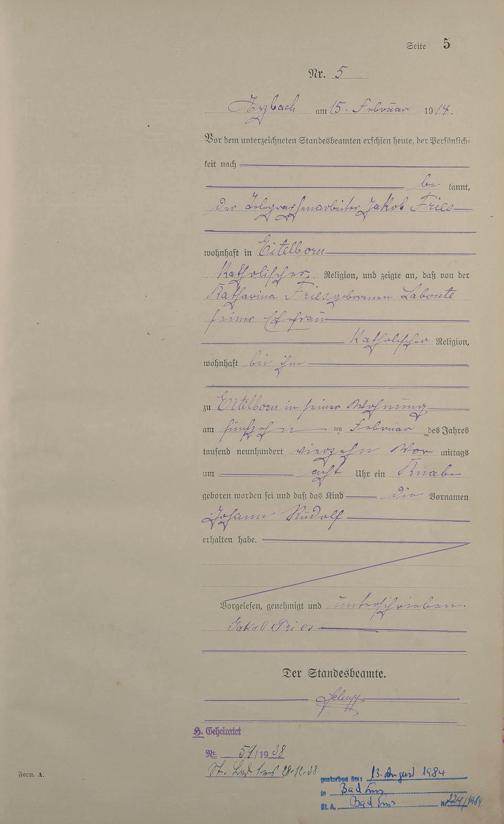 Seite 5
Nr. 5
am 15. Februar 1914.
Vor dem unterzeichneten Standesbeamten erschien heute, der Persönlich-
keit nach
be kannt,
der Telegraphenarbeiter Jakob Fries
wohnhaft in Eitelborn
katholischer Religion, und zeigte an, daß von der
Katharina Fries geborenen Labonte
seiner Ehefrau
katholischer Religion,
wohnhaft bei ihm
zu Eitelborn in seiner Wohnung
am fünfzehn ten Februar des Jahres
tausend neunhundert vierzehn Vor mittags
um acht Uhr ein Knabe
geboren worden sei und daß das Kind die Vornamen
Johann Rudolf
erhalten habe.
Vorgelesen, genehmigt und unterschrieben.
Jakob Fries
Der Standesbeamte.
Geheiratet
Nr. 1938
38
gestorben am: 13. August 1984
in Bad Ems
St. A. Bad Ems Nr. 1984
Form. A.